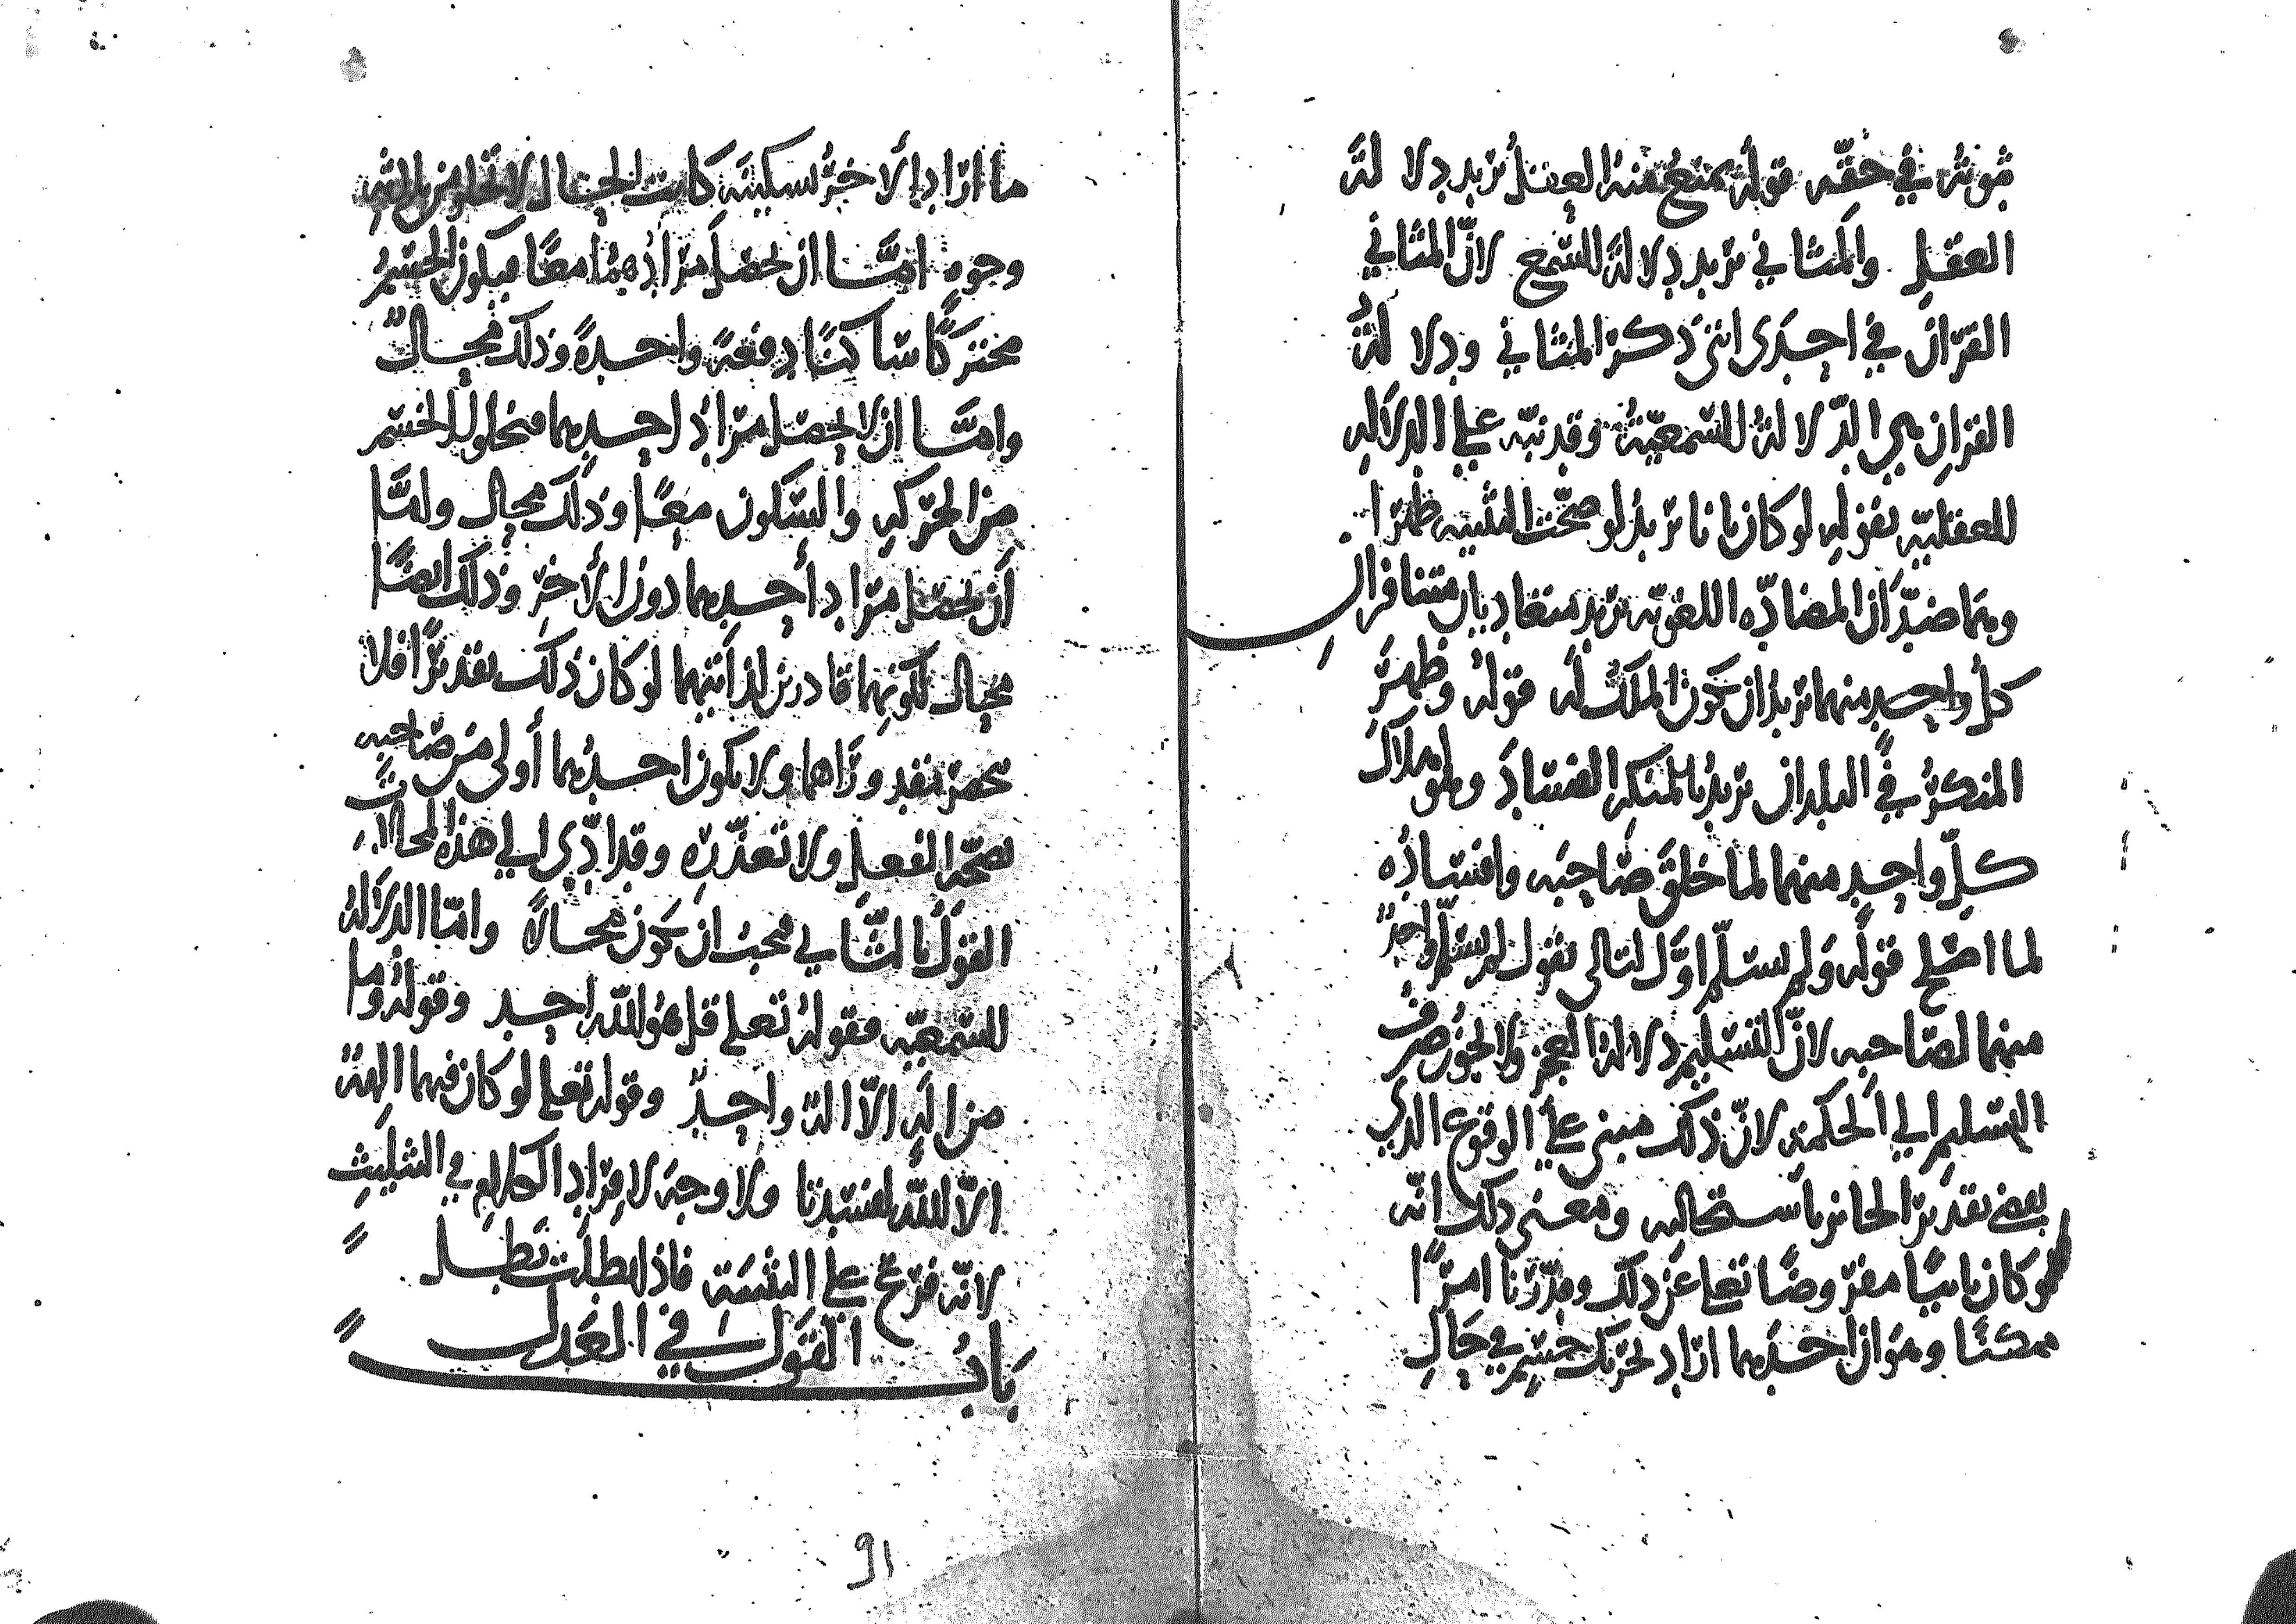 مؤثر في حقّه قوله يمنع منه العقل يريد دلالة
العقل والمثاني يريد دلالة السّمع لانّ المثاني
القرآن في احدى اثنى ذكر المثاني ودلالة
القرآن هي الدّلالة السّمعيّة وقد نبّه على الدلاله
العقليّه بقوله لو كان ثانيا يريد لو صحّت التثنيه ظهرا
وتماضدّا ان المضادّه اللغويّه يريد متعاديان متنافران
كل واحد منهما يريد ان يكون الملك له قوله وظهر
المنكر في البلدان يريد بالمنكر الفساد وهو هلاك
كلّ واحد منهما لما خلق صاحبه وافساده
لما اصلح قوله ولم يسلّم اوّل لتالى يقول لم يسلّم واحد
منهما لصاحبه لانّ التسليم دلالة العجز ولا يجوز صرف
التسليم الى الحكمة لانّ ذلك مبني على الوقوع الذي
يعني تقدير الجائز باستحاله ومعنى ذلك انّه
لو كان ثانيا مفروضا تعلى عن ذلك وقدّرنا امرًا
ممكنا وهو ان احدهما اراد تحريك جسم في حال
ما اراد الاخر تسكينه كانت الحال لا تخلو من ثلاثة
وجوه امّا ان يحصل مرادهما معًا فيكون الجسم
متحركًا ساكنًا دفعةً واحدةً وذلك محال
وامّا ان لا يحصل مراد احدهما فيخلو الجسم
من الحركه والسكون معًا وذلك محال وامّا
ان يحصل مراد أحدهما دون الأخر وذلك ايضًا
محال لكونهما قادرين لذاتيهما لو كان ذلك تقديرًا فلا
ينحصر مقدوراهما ولا يكون احدهما أولى من صاحبه
بصحّة الفعل ولا تعذّره وقد ادّى الى هذه المحالات
القول بالثّاني فيجب ان يكون محالًا وامّا الدلالة
السّمعيّه فقوله تعلى قل هو اللّه احد وقوله وما
من اله الاّ اله واحد وقوله تعلى لو كان فيهما الهة
الاّ اللّه لفسدتا ولا وجه لافراد الكلام في التثليث
لانّه فرع على التثنيه فاذا بطلت بطل
بابُ القول في العدل
91